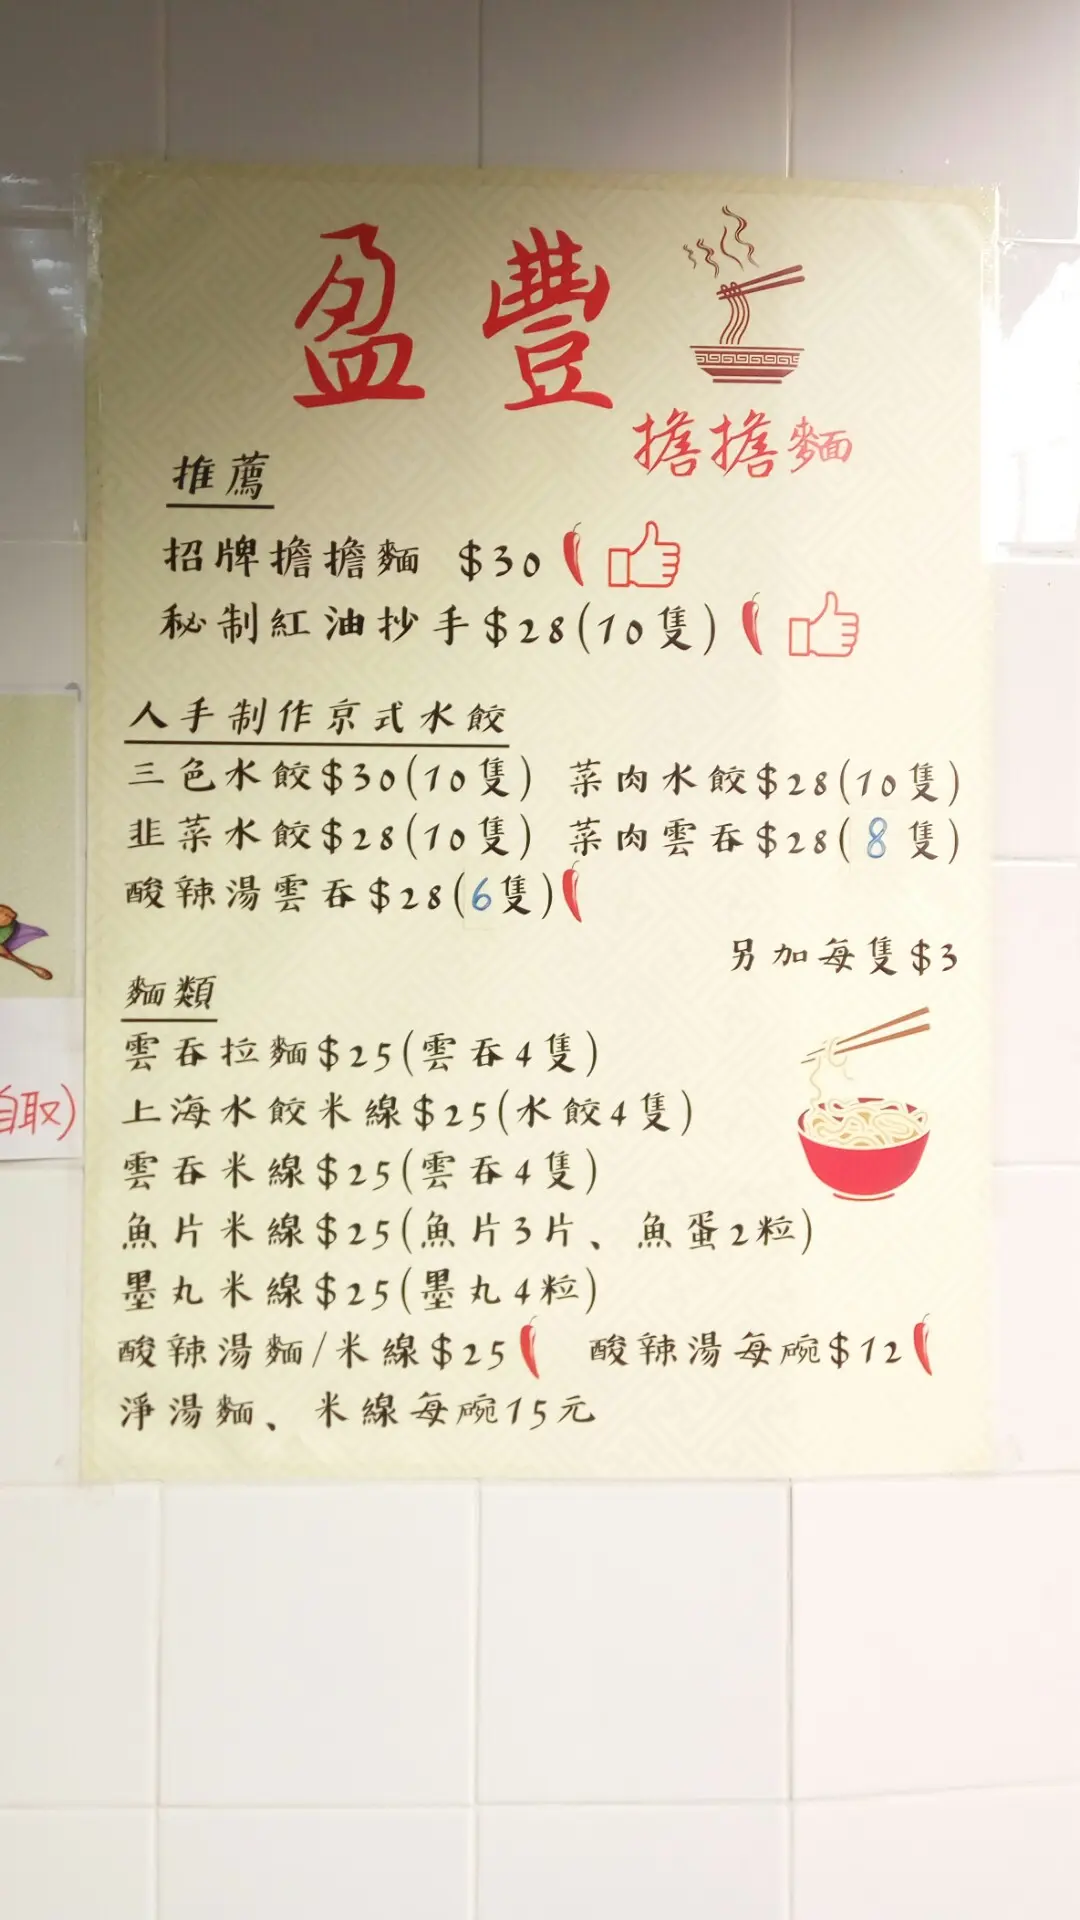 盈豐
擔擔麵
推薦
招牌擔擔麵 $30
秘制紅油抄手$28(10隻)
人手制作京式水餃
三色水餃$30(10隻) 菜肉水餃$28(10隻)
韭菜水餃$28(10隻) 菜肉雲吞$28(8隻)
酸辣湯雲吞$28(6隻)
另加每隻$3
麵類
雲吞拉麵$25(雲吞4隻)
上海水餃米線$25(水餃4隻)
雲吞米線$25(雲吞4隻)
魚片米線$25(魚片3片、魚蛋2粒)
墨丸米線$25(墨丸4粒)
酸辣湯麵/米線$25 酸辣湯每碗$12
淨湯麵、米線每碗15元
自取)